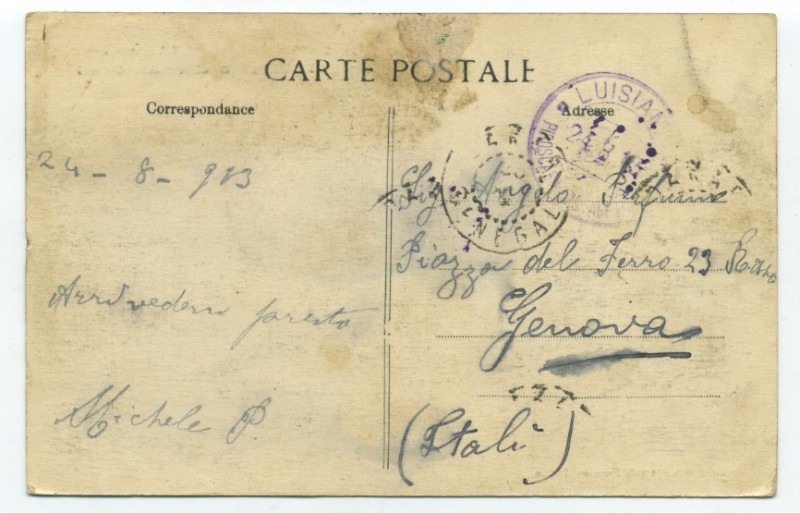 CARTE POSTALE
Correspondance
Adresse
LUISIA
SENEGAL
24 - 8 - 913
Sig. Angelo
Piazza del Ferro 23
Genova
(Itali)
Arrivederci presto
Michele P.